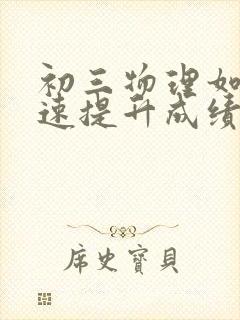 初三物理如
速提升成绩
席史宝贝